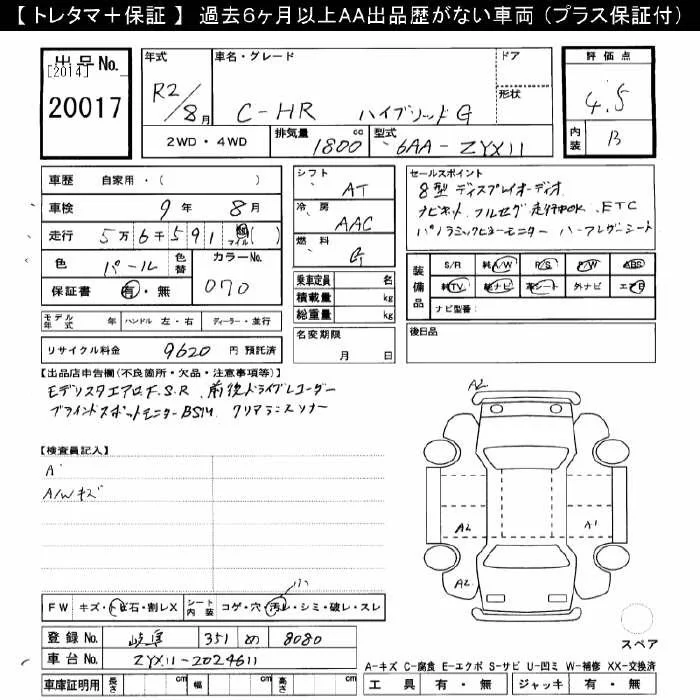 【 トレタマ＋保証 】 過去6ヶ月以上AA出品歴がない車両（プラス保証付）
出品No.
[2014]
20017
年式
R2/8月
車名・グレード
C-HR ハイブリッドG
ドア
形状
評価点
4.5
内装 B
2WD・4WD
排気量 1800 cc
型式 6AA-ZYX11
車歴 自家用・( )
車検 9年 8月
走行 5万6千591 km マイル ( )
色 パール
色替
カラーNo. 070
保証書 有・無
シフト AT
冷房 AAC
燃料 G
乗車定員 名
積載量 kg
総重量 kg
セールスポイント
8型ディスプレイオーディオ
ナビキット フルセグ 走行中OK ETC
パノラミックビューモニター ハーフレザーシート
装備品
S/R 純A/W P/S P/W ABS
純TV 純ナビ 革シート 外ナビ エアB
ナビ型番：
モデル年式 年 ハンドル 左・右 ディーラー・並行
名変期限 月 日
後日品
リサイクル料金 9620 円 預託済
【出品店申告欄(不良箇所・欠品・注意事項等)】
モデリスタエアロF.S.R 前後ドライブレコーダー
ブラインドスポットモニターBSM クリアランスソナー
【検査員記入】
A'
A/Wキズ
A2
A2
A1
A2
スペア
FW キズ・トビ石・割レX
シート内装 コゲ・穴・汚レ・シミ・破レ・スレ
登録No. 岐阜 351 め 8080
車台No. ZYX11-2024611
A-キズ C-腐食 E-エクボ S-サビ U-凹ミ W-補修 XX-交換済
車庫証明用 長さ cm 幅 cm 高さ cm
工具 有・無 ジャッキ 有・無